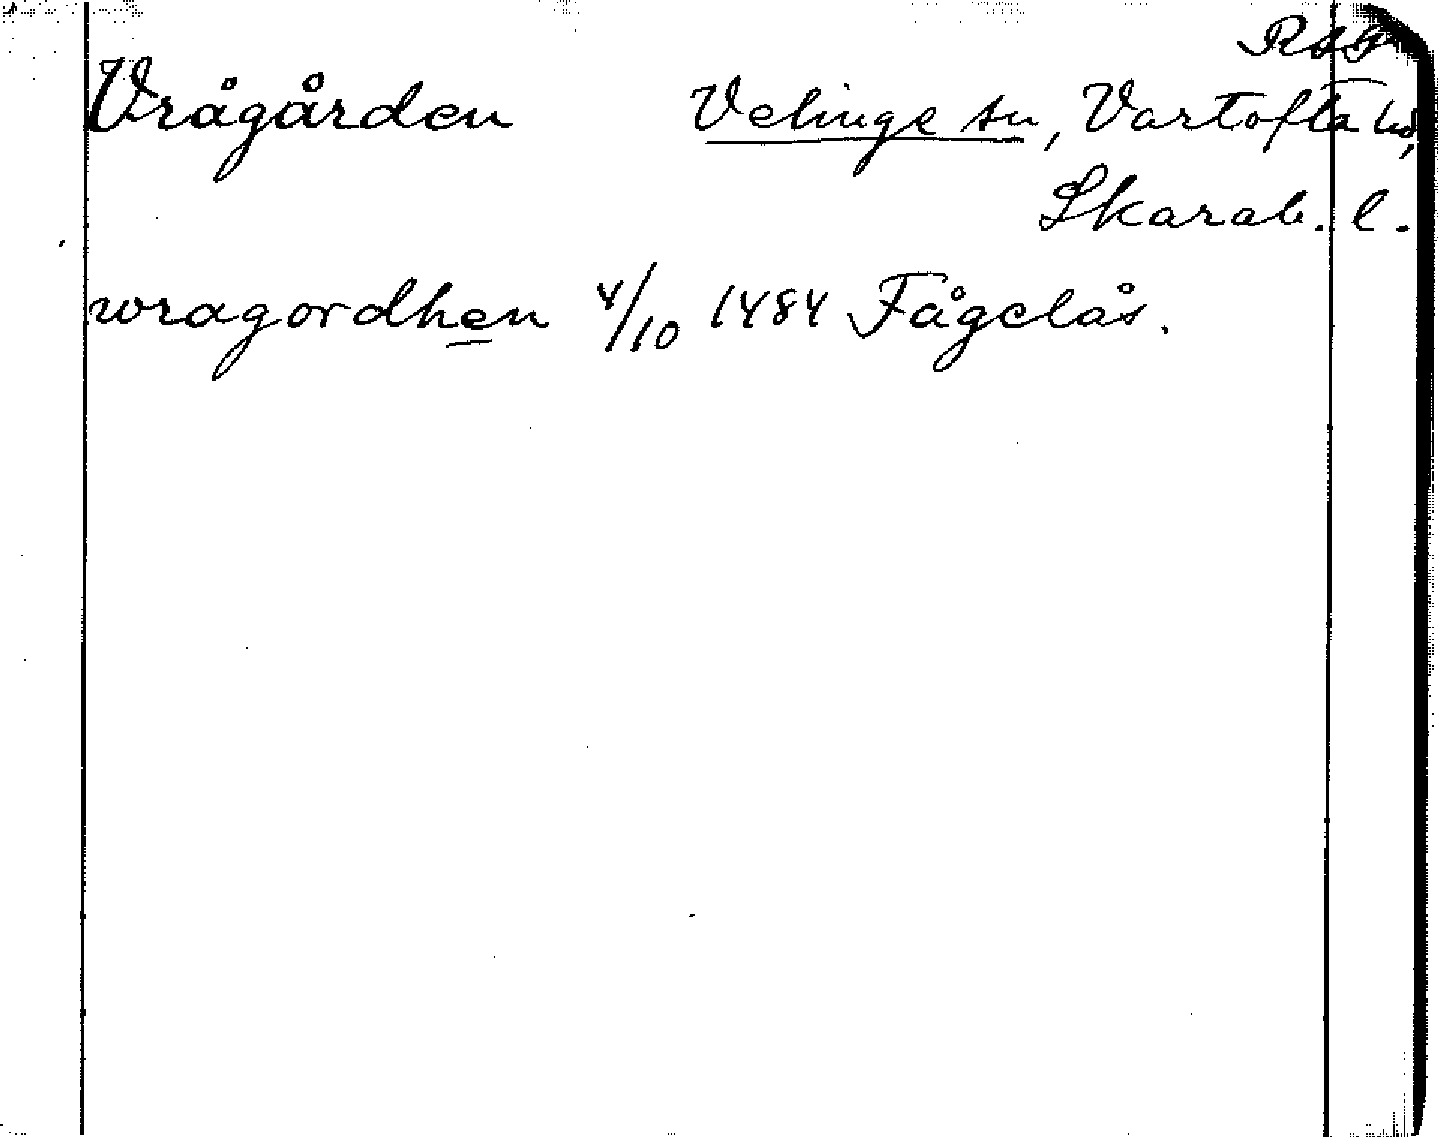 Vrågården Velinge sn, Vartofta hd,
Skarab. l.
wragordhen 4/10 1484 Fågelås.